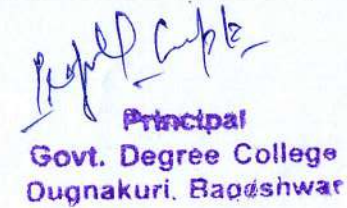 Principal
Govt. Degree College
Dugnakuri. Bageshwar